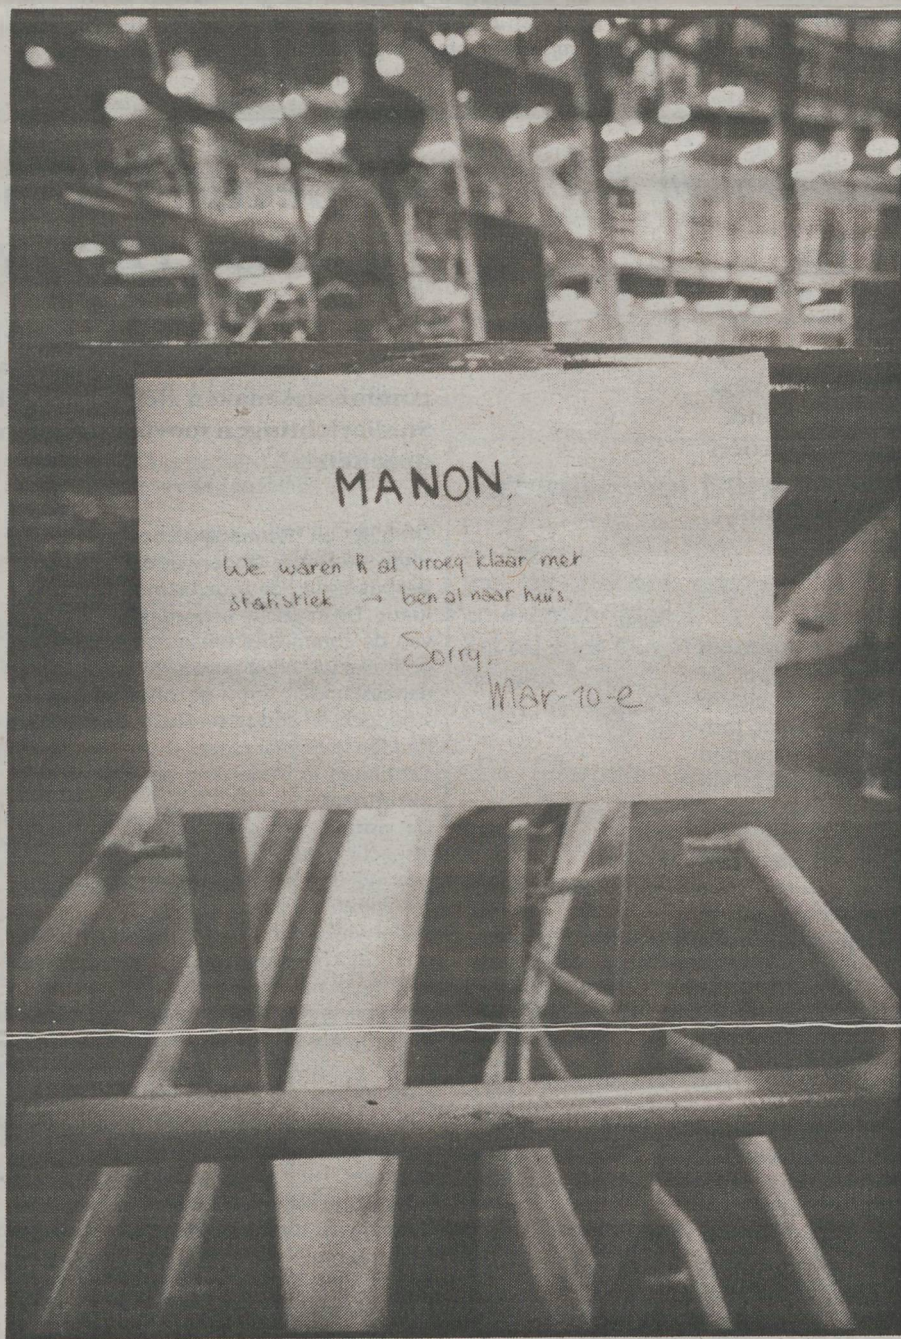 MANON.
We waren al vroeg klaar met
statistiek → ben al naar huis.
Sorry,
Mar-10-e